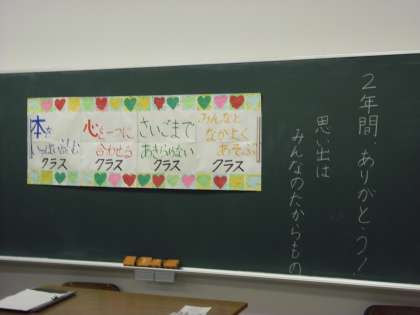 本を
いっぱい読む
クラス
心を一つに
合わせる
クラス
さいごまで
あきらめない
クラス
みんなと
なかよく
あそぶ
クラス
2年間 ありがとう!
思い出は
みんなのたからもの